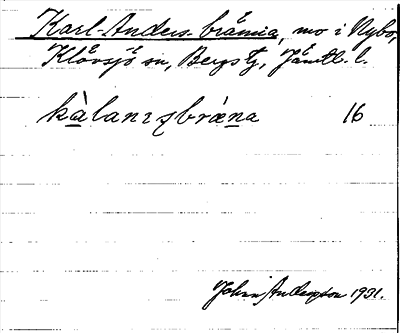 Karl-Anders-brånnia, mo i Nybo,
Klövsjö sn, Bergs tg, Jämtl. l.
kàlanɪʂbrǽna 16
John Andersson 1931.